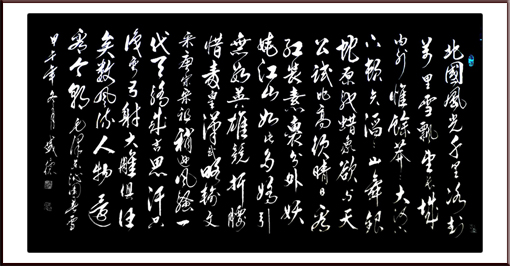 北國風光千里冰封
萬里雪飄望長城
內外惟餘莽莽大河上
下頓失滔滔山舞銀
蛇原馳蠟象欲與天
公試比高須晴日看
紅裝素裹分外妖
嬈江山如此多嬌引
無數英雄競折腰
惜秦皇漢武略輸文
采唐宗宋祖稍遜風騷一
代天驕成吉思汗只
識彎弓射大雕俱往
矣數風流人物還
看今朝 毛澤東沁園春雪
甲午年冬月